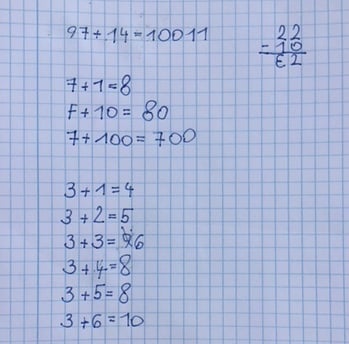 97+14=10011
22
-10
62
7+1=8
7+10=80
7+100=700
3+1=4
3+2=5
3+3=6
3+4=8
3+5=8
3+6=10